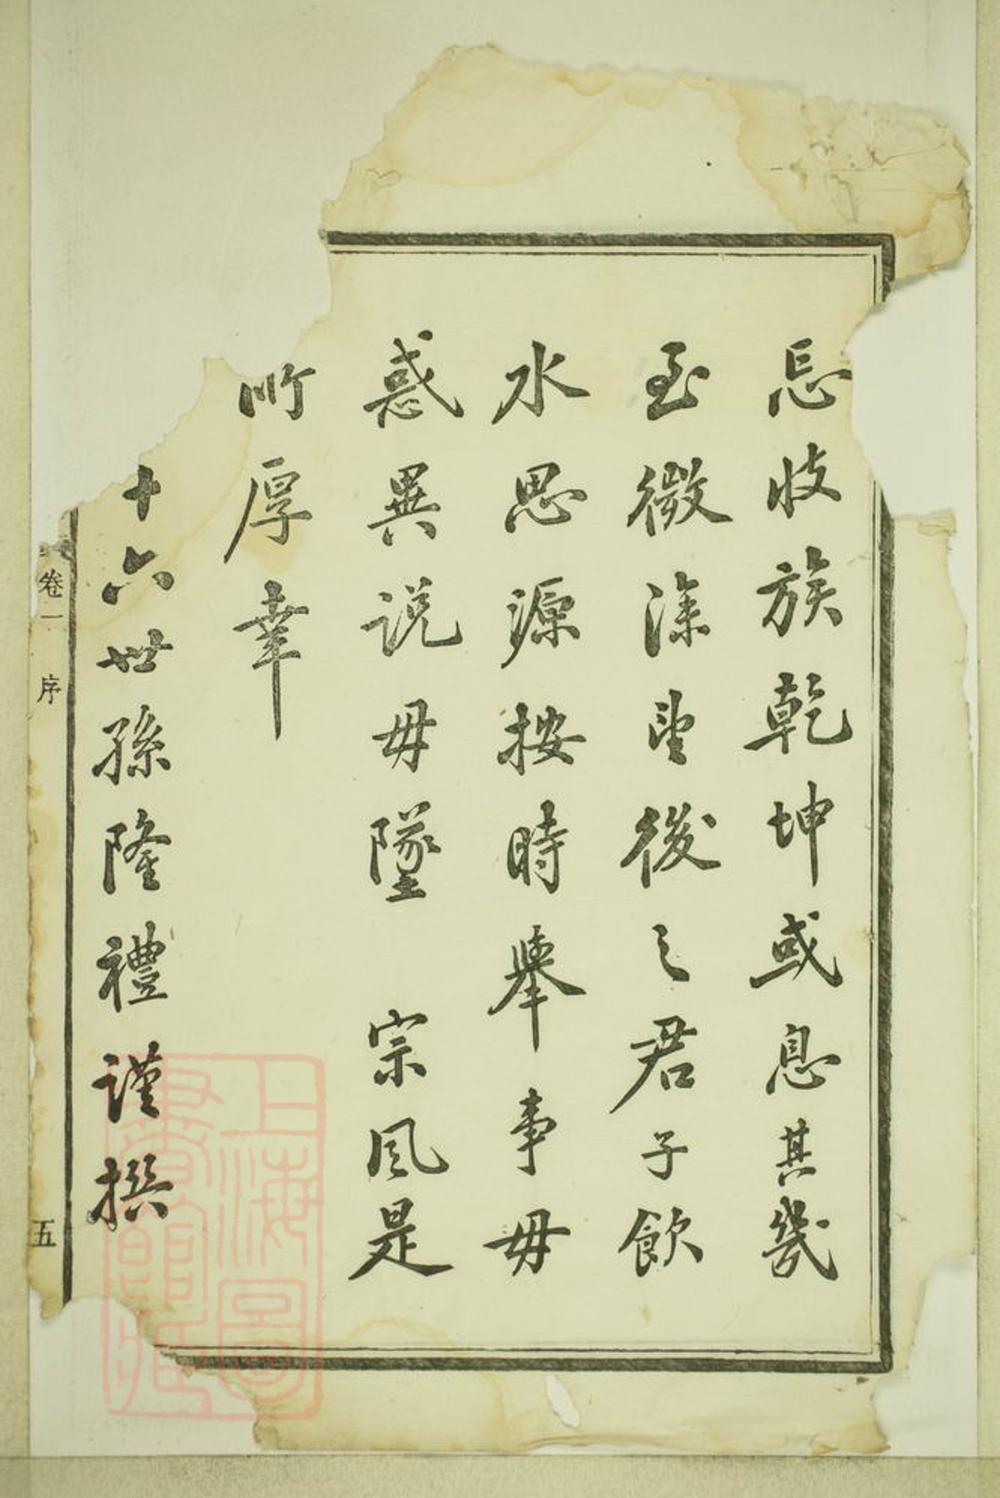 忌收族乾坤或息其幾
至微深望後之君子飲
水思源按時舉事毋
惑異説毋墜 宗風是
所厚幸
十六世孫隆禮謹撰
卷一 序 五
上海圖
書館藏